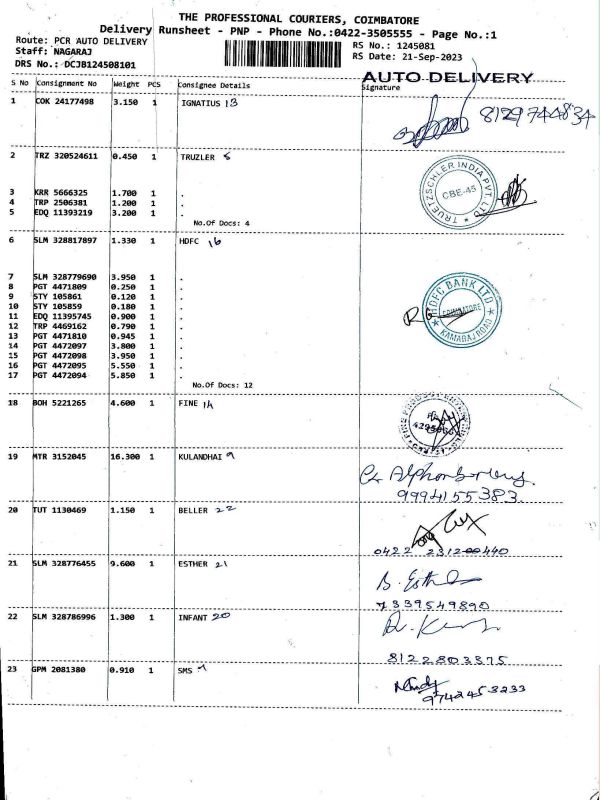 THE PROFESSIONAL COURIERS, COIMBATORE
Delivery Runsheet - PNP - Phone No.:0422-3505555 - Page No.:1
Route: PCR AUTO DELIVERY
RS No.: 1245081
Staff: NAGARAJ
RS Date: 21-Sep-2023
DRS No.: DCJB124508101
AUTO DELIVERY
S No Consignment No Weight PCS Consignee Details Signature
1 COK 24177498 3.150 1 IGNATIUS 13
8129744834
2 TRZ 320524611 0.450 1 TRUZLER 6
TRUETZSCHLER INDIA PVT. LTD
CBE-45
3 KRR 5666325 1.700 1 .
4 TRP 2506381 1.200 1 .
5 EDQ 11393219 3.200 1 .
No.Of Docs: 4
6 SLM 328817897 1.330 1 HDFC 16
7 SLM 328779690 3.950 1 .
8 PGT 4471809 0.250 1 .
9 STY 105861 0.120 1 .
10 STY 105859 0.180 1 .
11 EDQ 11395745 0.900 1 .
12 TRP 4469162 0.790 1 .
13 PGT 4471810 0.945 1 .
14 PGT 4472097 3.800 1 .
15 PGT 4472098 3.950 1 .
16 PGT 4472095 5.550 1 .
17 PGT 4472094 5.850 1 .
HDFC BANK LTD
COIMBATORE
KAMARAJ ROAD
No.Of Docs: 12
18 BOH 5221265 4.600 1 FINE 14
19 MTR 3152045 16.300 1 KULANDHAI 9
9994155383
20 TUT 1130469 1.150 1 BELLER 22
0422
21 SLM 328776455 9.600 1 ESTHER 21
7339549890
22 SLM 328786996 1.300 1 INFANT 20
8122803375
23 GPM 2081380 0.910 1 SMS
9742453233